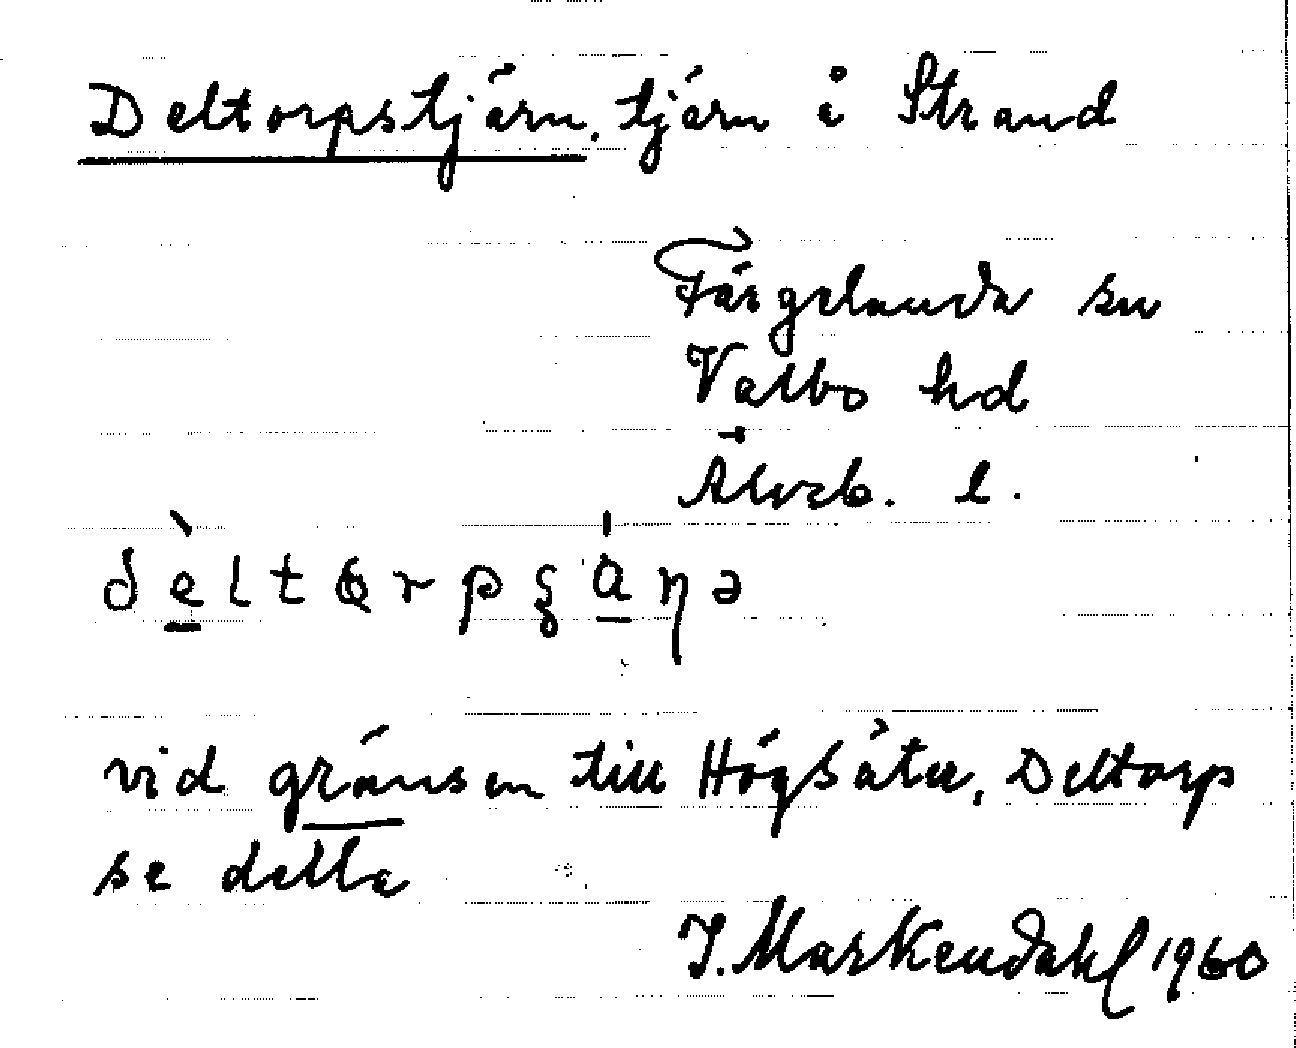 Deltorpstjärn, tjärn i Strand
Färgelanda sn
Valbo hd
Älvsb. l.
vid gränsen till Högsäter, Deltorp
se detta
J. Markendahl 1960